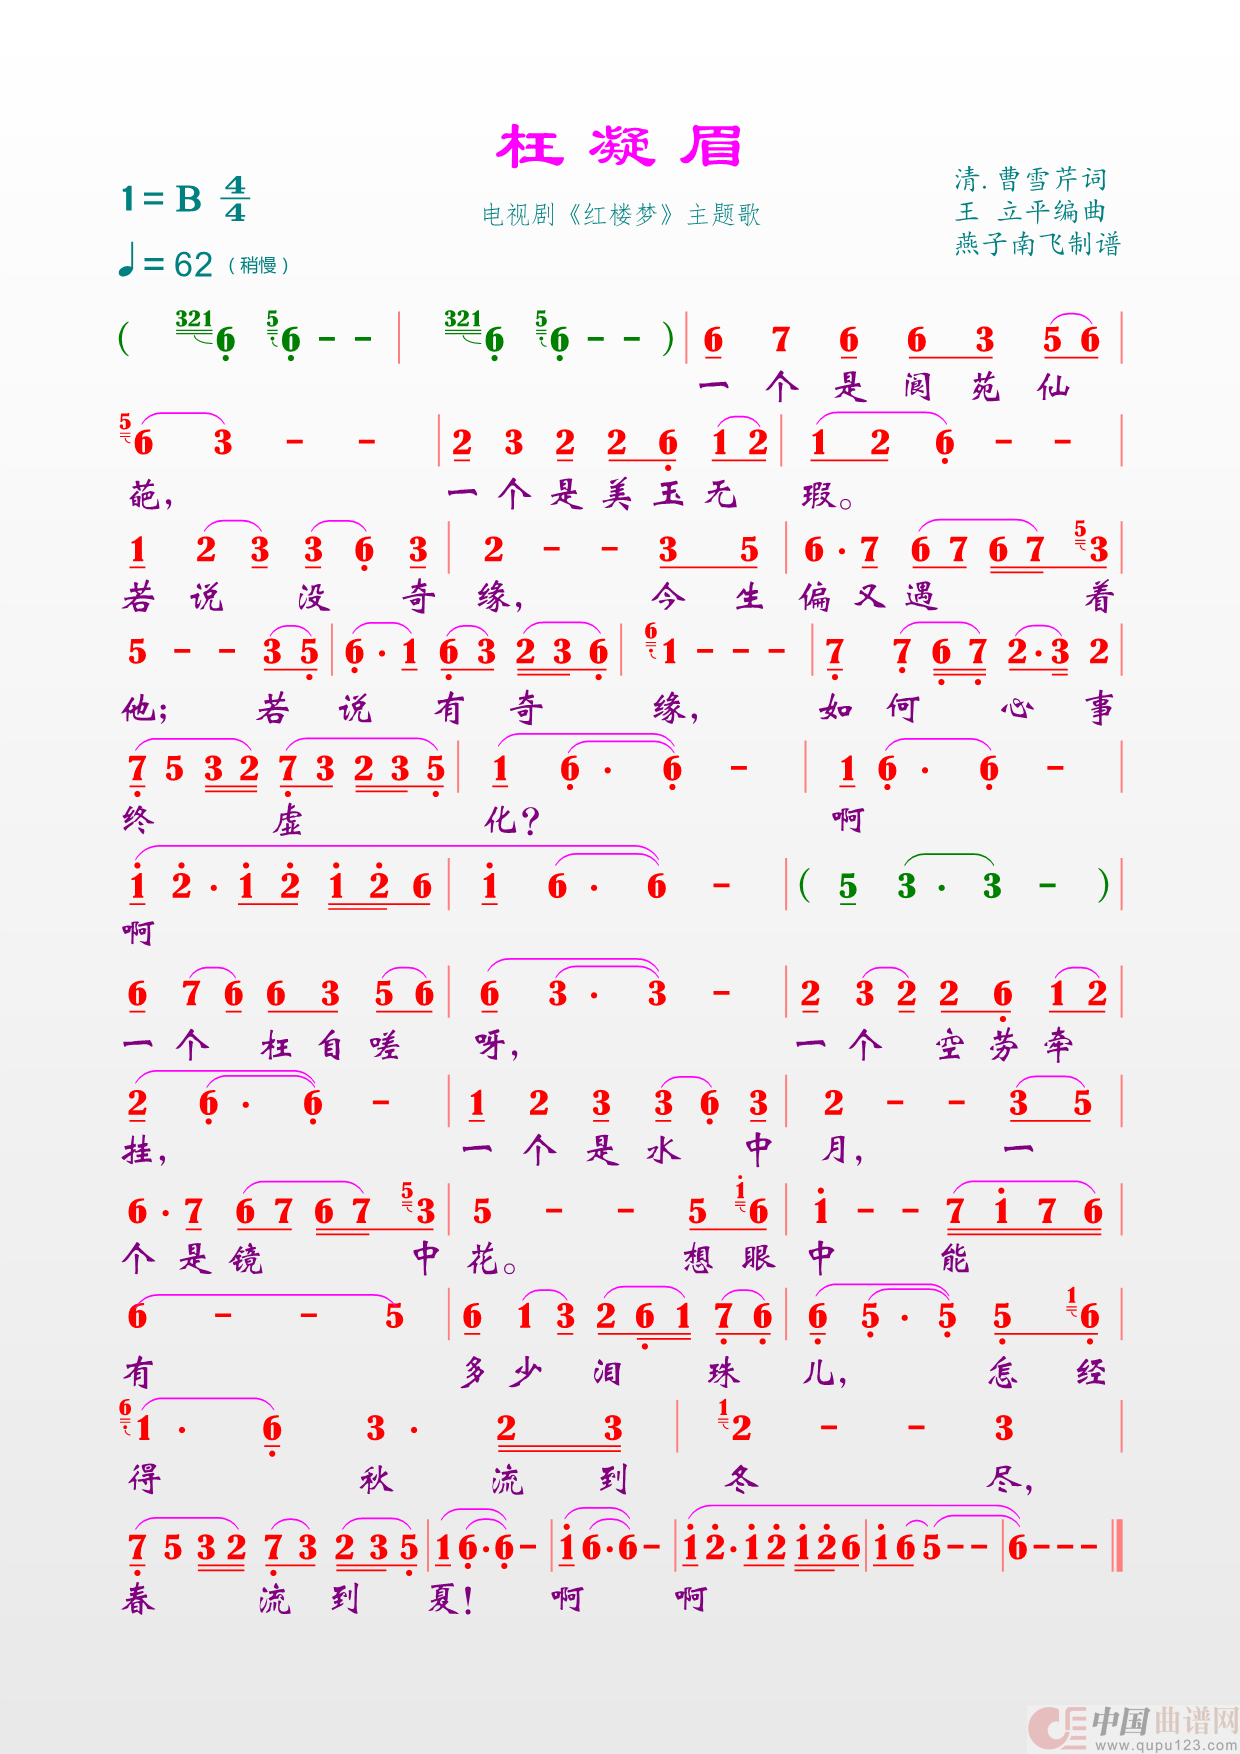 枉凝眉
1=B 4/4
电视剧《红楼梦》主题歌
清.曹雪芹词
王 立平编曲
燕子南飞制谱
♩=62（稍慢）
( 321 6 5 6 - - | 321 6 5 6 - - ) | 6 7 6 6 3 5 6 |
一个是阆苑仙
5 6 3 - - | 2 3 2 2 6 1 2 | 1 2 6 - - |
葩， 一个是美玉无 瑕。
1 2 3 3 6 3 | 2 - - 3 5 | 6 · 7 6 7 6 7 5 3 |
若说没奇缘， 今生偏又遇着
5 - - 3 5 | 6 · 1 6 3 2 3 6 | 6 1 - - - | 7 7 6 7 2 · 3 2 |
他；若说有奇缘， 如何心事
7 5 3 2 7 3 2 3 5 | 1 6 · 6 - | 1 6 · 6 - |
终虚化？ 啊
1 2 · 1 2 1 2 6 | 1 6 · 6 - | ( 5 3 · 3 - ) |
啊
6 7 6 6 3 5 6 | 6 3 · 3 - | 2 3 2 2 6 1 2 |
一个枉自嗟呀， 一个空劳牵
2 6 · 6 - | 1 2 3 3 6 3 | 2 - - 3 5 |
挂， 一个是水中月， 一
6 · 7 6 7 6 7 5 3 | 5 - - 5 1 6 | 1 - - 7 1 7 6 |
个是镜中花。 想眼中能
6 - - 5 | 6 1 3 2 6 1 7 6 | 6 5 · 5 5 1 6 |
有 多少泪珠儿， 怎经
6 1 · 6 3 · 2 3 | 1 2 - - 3
得秋流到冬尽，
7 5 3 2 7 3 2 3 5 | 1 6 · 6 - | 1 6 · 6 - | 1 2 · 1 2 1 2 6 | 1 6 5 - - | 6 - - - ‖
春流到夏！ 啊 啊
中国曲谱网
www.qupu123.com